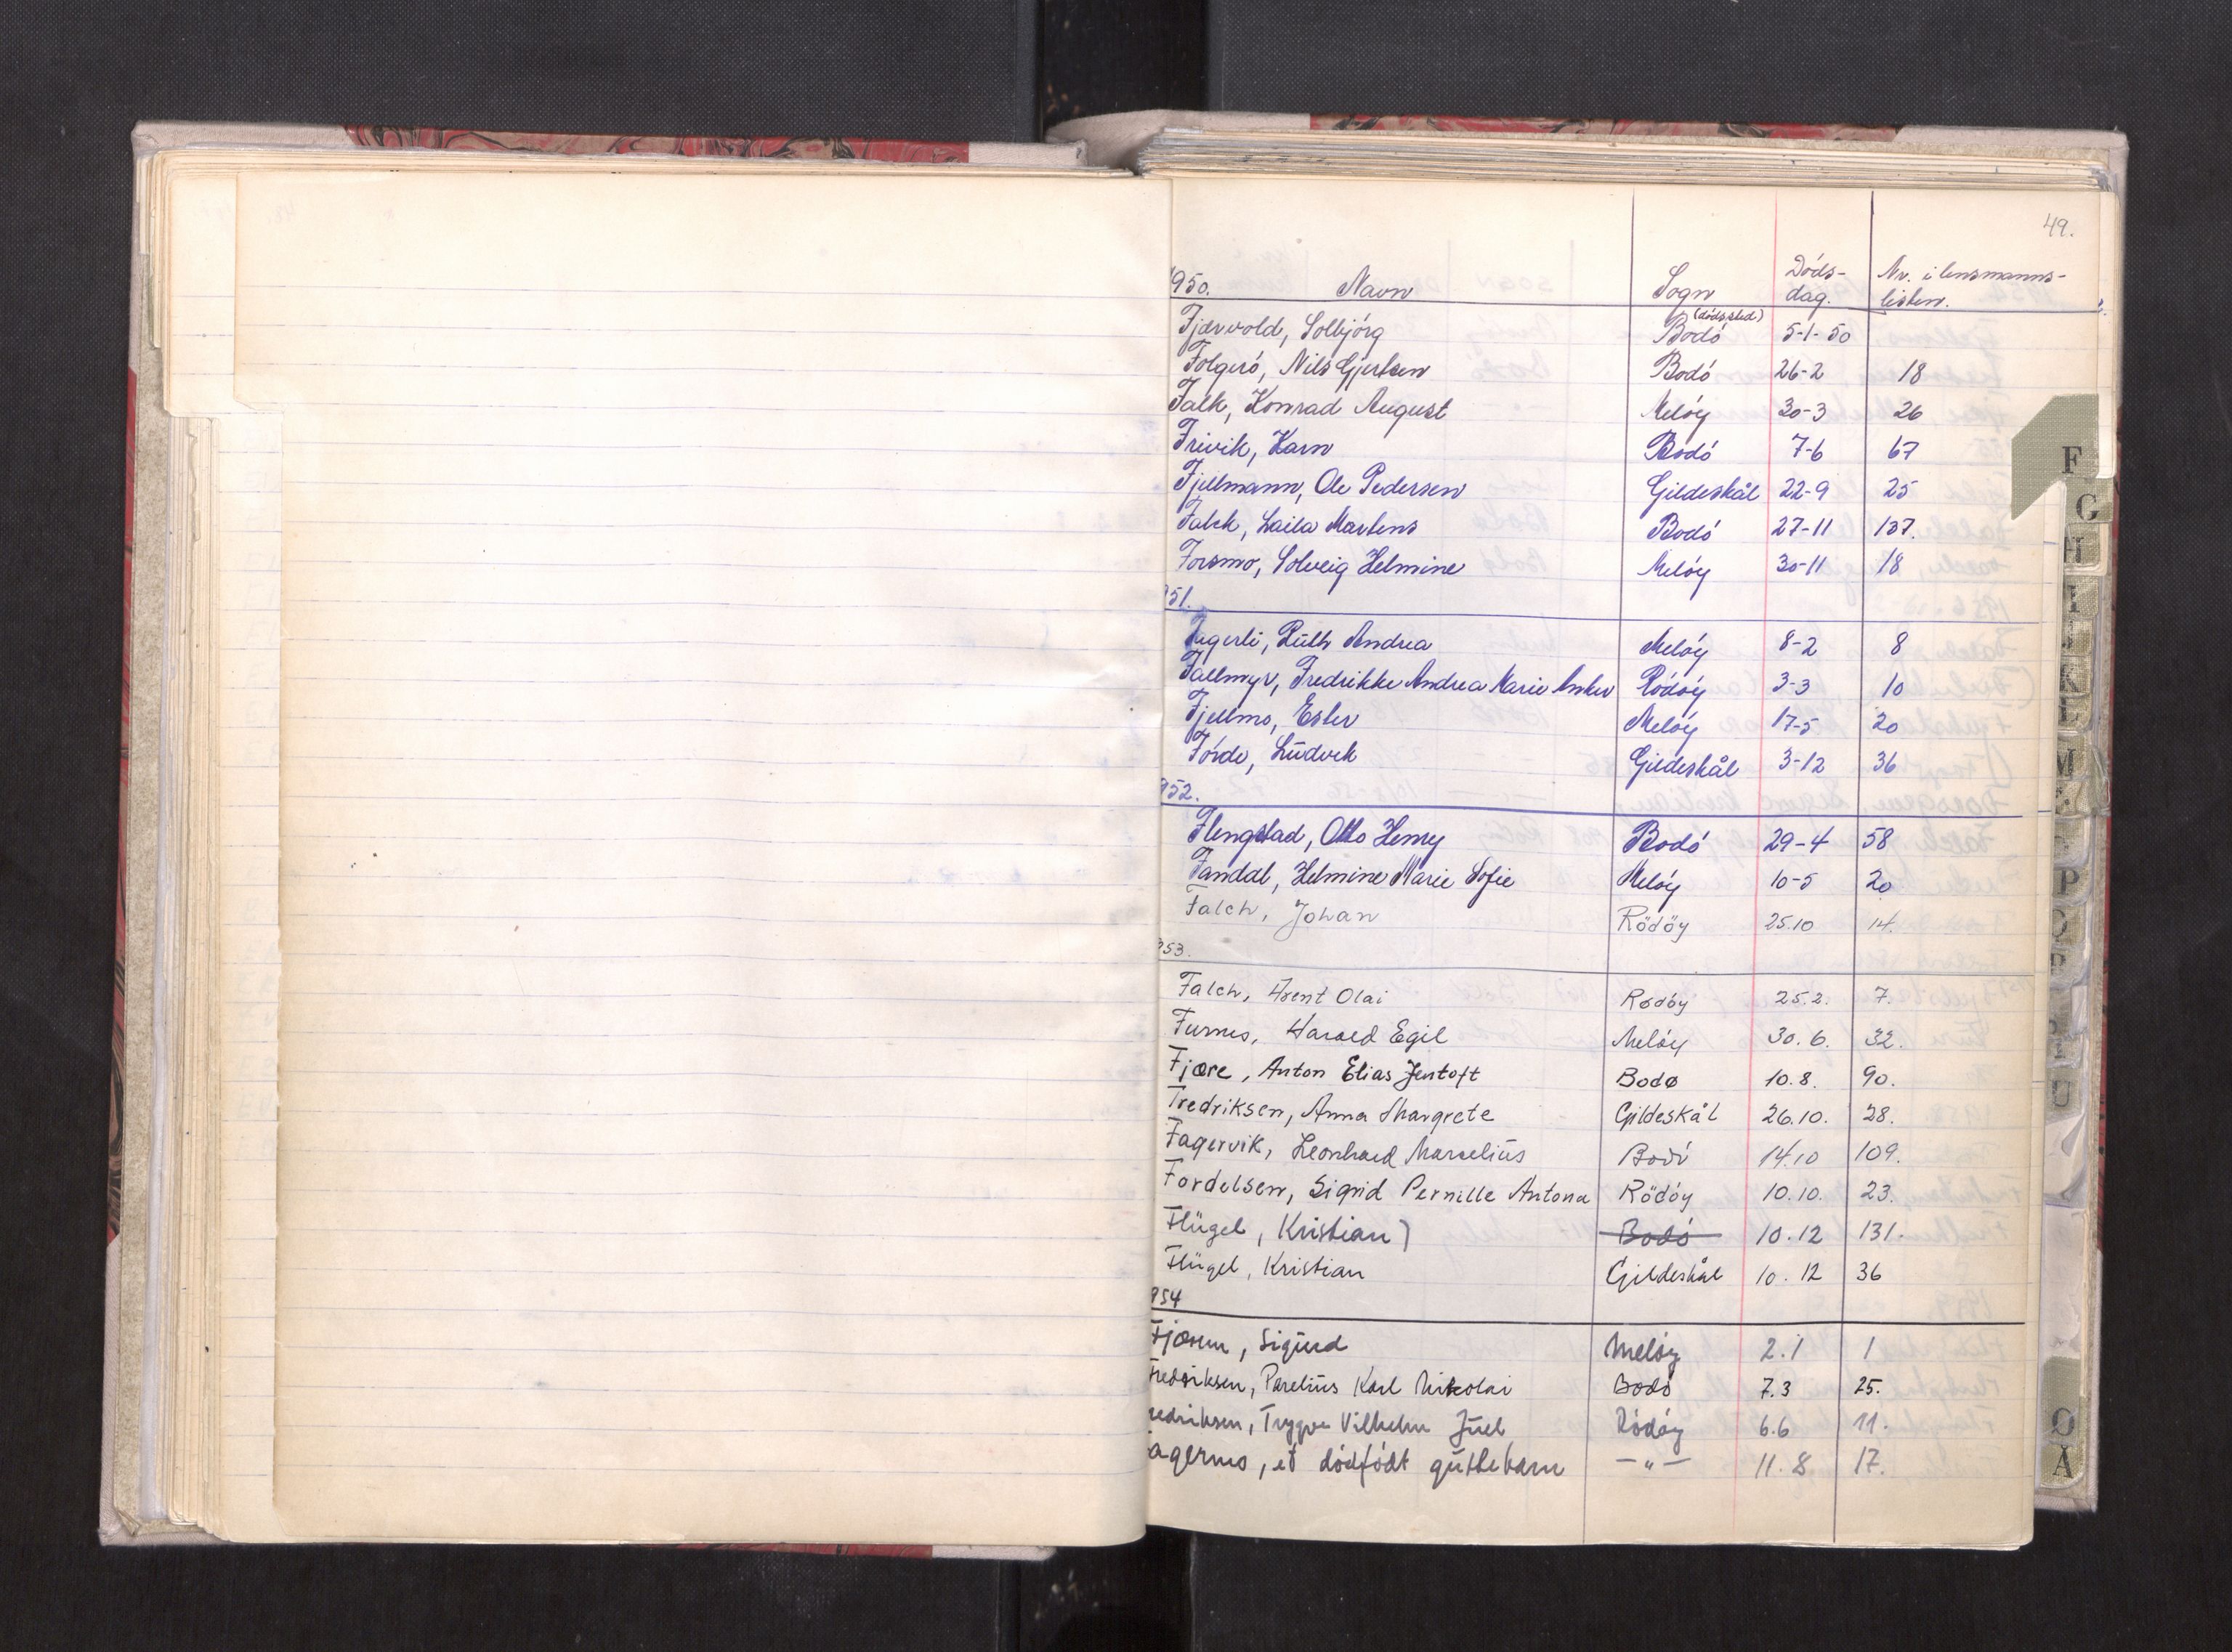 49.
1950. Navn Sogn Döds- Nr. i lensmanns-
dag. listen.
(dödssted)
Fjærvold, Solbjörg Bodó 5-1-50
Folgeró, Nils Gjertsen Bodó 26-2 18
Falk, Konrad August Melóy 30-3 26
Frivik, Karn Bodó 7-6 67
Fjellmann, Ole Pedersen Gildeskål 22-9 25
Falck, Laila Martens Bodó 27-11 137.
Forsmo, Solveig Helmine Melóy 30-11 18
951.
Fagerli, Ruth Andrea Melóy 8-2 8
Fallmyr, Fredrikke Andrea Marie Anker Ródóy 3-3 10
Fjellmo, Ester Melóy 17-5 20
Förde, Ludvik Gildeskål 3-12 36
952.
Flengstad, Otto Henry Bodó 29-4 58
Fandal, Helmine Marie Sofie Melóy 10-5 20
Falch, Johan Rödöy 25.10 14.
953.
Falch, Arent Olai Rödöy 25.2. 7.
Furnes, Harald Egil Melóy 30.6. 32.
Fjære, Anton Elias Jentoft Bodø 10.8. 90.
Fredriksen, Anna Margrete Gildeskål 26.10. 28.
Fagervik, Leonhard Marselius Bodó 14.10 109.
Fordelsen, Sigrid Pernille Antona Rödöy 10.10. 23.
Flügel, Kristian) Bodó 10.12 131.
Flügel, Kristian Gildeskål 10.12 36
954
Fjærem, Sigurd Melóy 2.1 1
Fredriksen, Parelius Karl Nikolai Bodó 7.3 25.
redriksen, Trygve Vilhelm Juel Ródóy 6.6 11.
agermo, et dödfödt guttebarn —"— 11.8 17.
F
G
H
I
J
K
L
M
P
O
R
U
Ø
Å